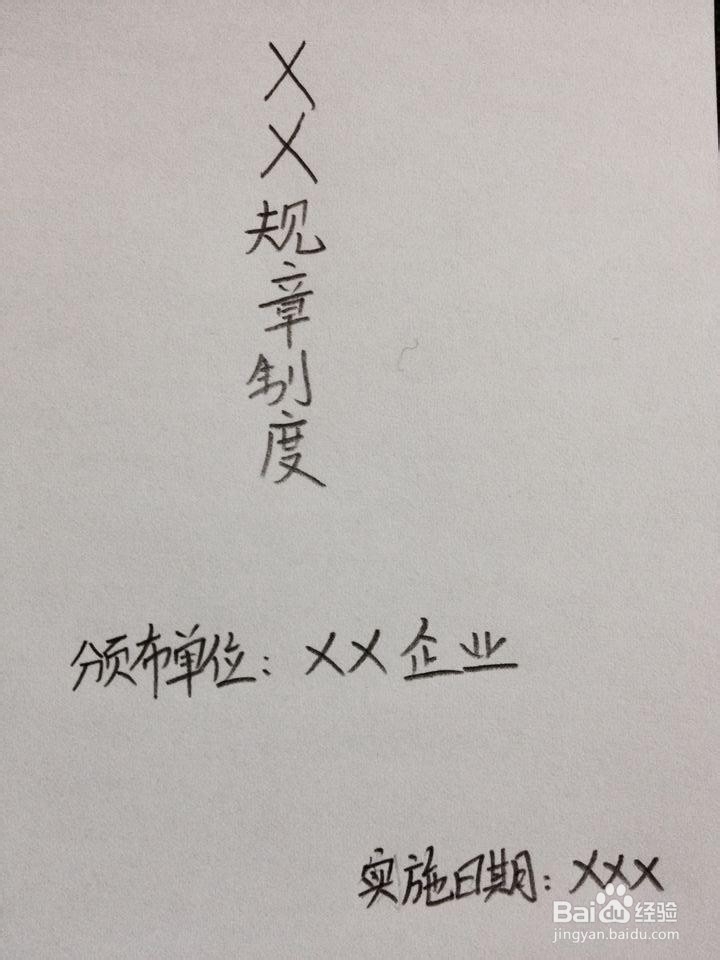 XX规章制度
颁布单位：XX企业
实施日期：XXX
Baidu经验
jingyan.baidu.com